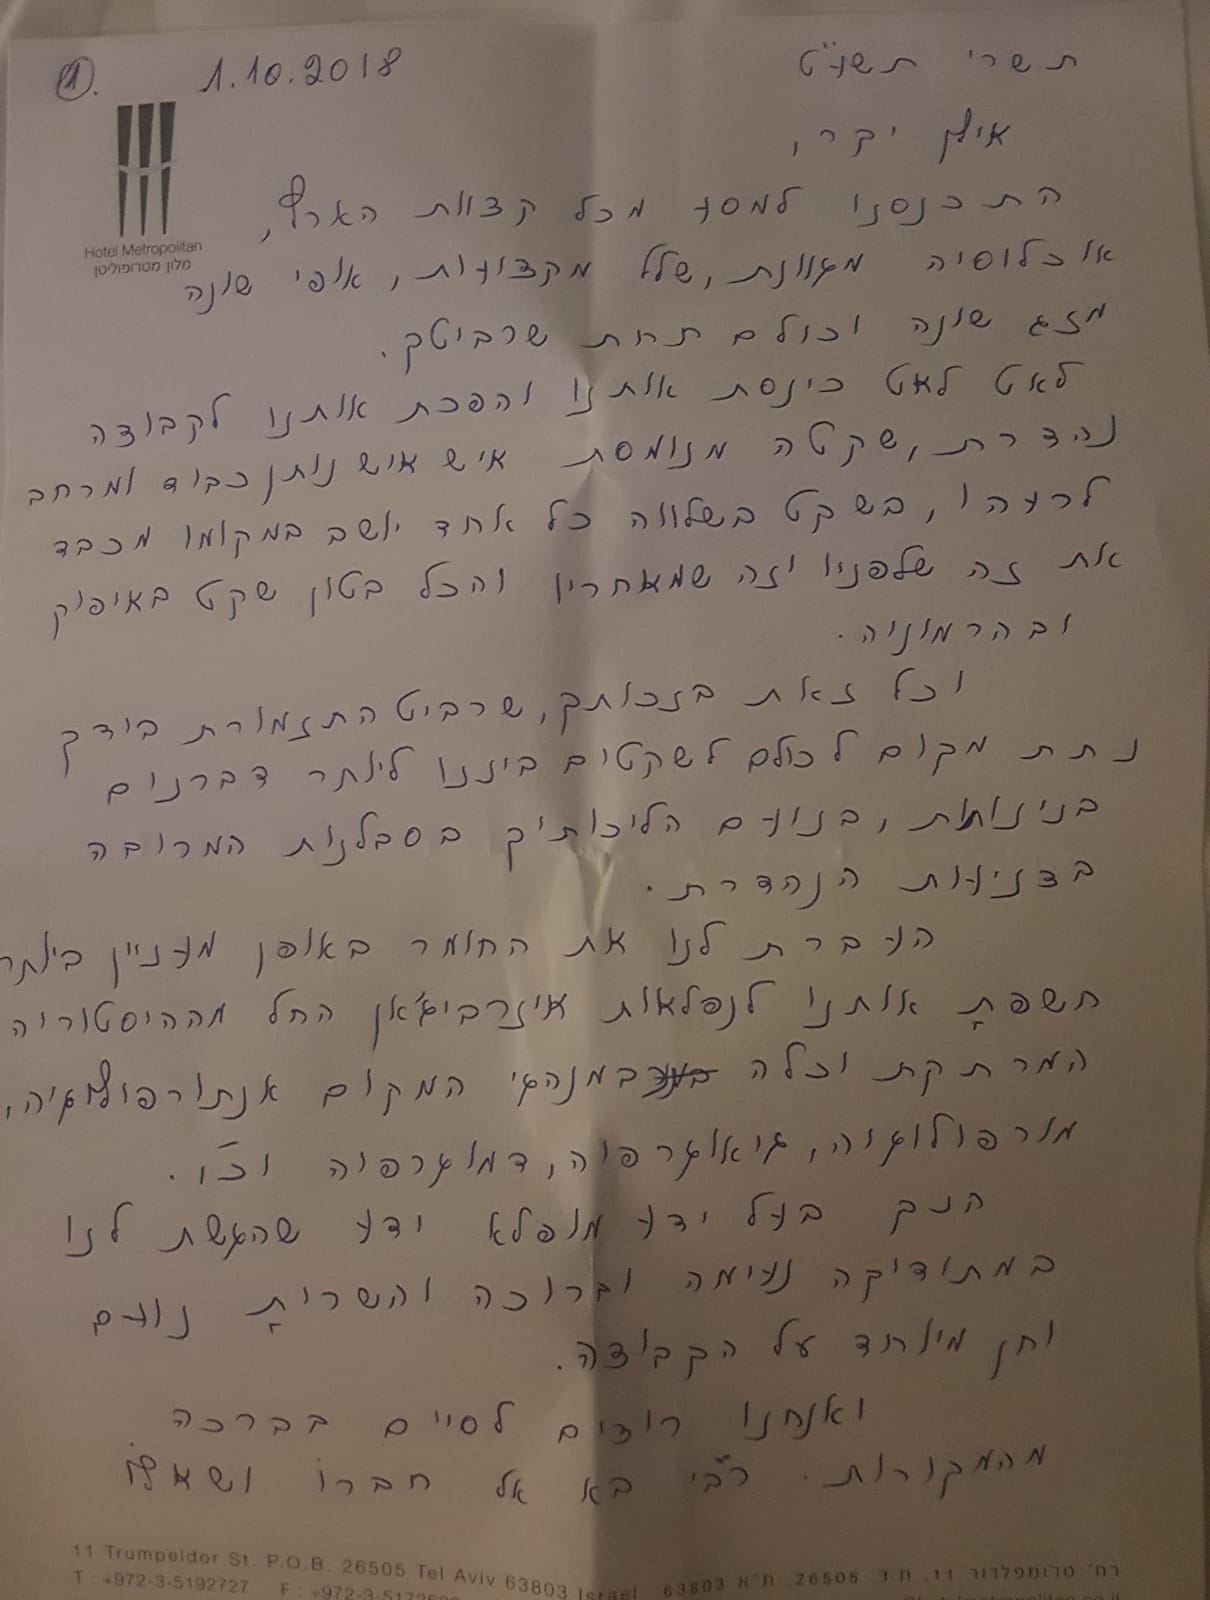 ①. 1.10.2018 תשרי תשע"ט
Hotel Metropolitan
מלון מטרופוליטן
אילן יקר,
התכנסנו למסע מכל קצוות הארץ,
אוכלוסיה מגוונת, שלל מקצועות, אופי שונה
מזג שונה וכולם תחת שרביטך.
לאט לאט כינסת אותנו והפכת אותנו לקבוצה
נהדרת, שקטה מנומסת איש איש נותן כבוד ומרחב
לרעהו, בשקט בשלווה כל אחד יושב במקומו מכבד
את זה שלפניו וזה שמאחריו והכל בטון שקט באיפוק
ובהרמוניה.
וכל זאת בזכותך, שרביט התזמורת בידך
נתת מקום לכולם לשקטים ביננו ליותר דברנים
בנינוחות, בנועם הליכותיך בסבלנות המרובה
בצניעות הנהדרת.
העברת לנו את החומר באופן מעניין ביותר
חשפתָ אותנו לנפלאות אזרבייג'אן החל מההיסטוריה
המרתקת וכלה במנהגי המקום אנתורפולוגיה,
מורפולוגיה, גיאוגרפיה, דמוגרפיה וכו'.
הנך בעל ידע מופלא ידע שהגשת לנו
במתודיקה נעימה וברוכה והשריתָ נועם
וחן מיוחד על הקבוצה.
ואנחנו רוצים לסיים בברכה
מהמקורות. רבי בא אל חברו ושאלו
11 Trumpeldor St. P.O.B. 26505 Tel Aviv 63803 Israel רח' טרומפלדור 11, ת.ד. 26505, ת"א 63803
T: +972-3-5192727 F: +972-3-